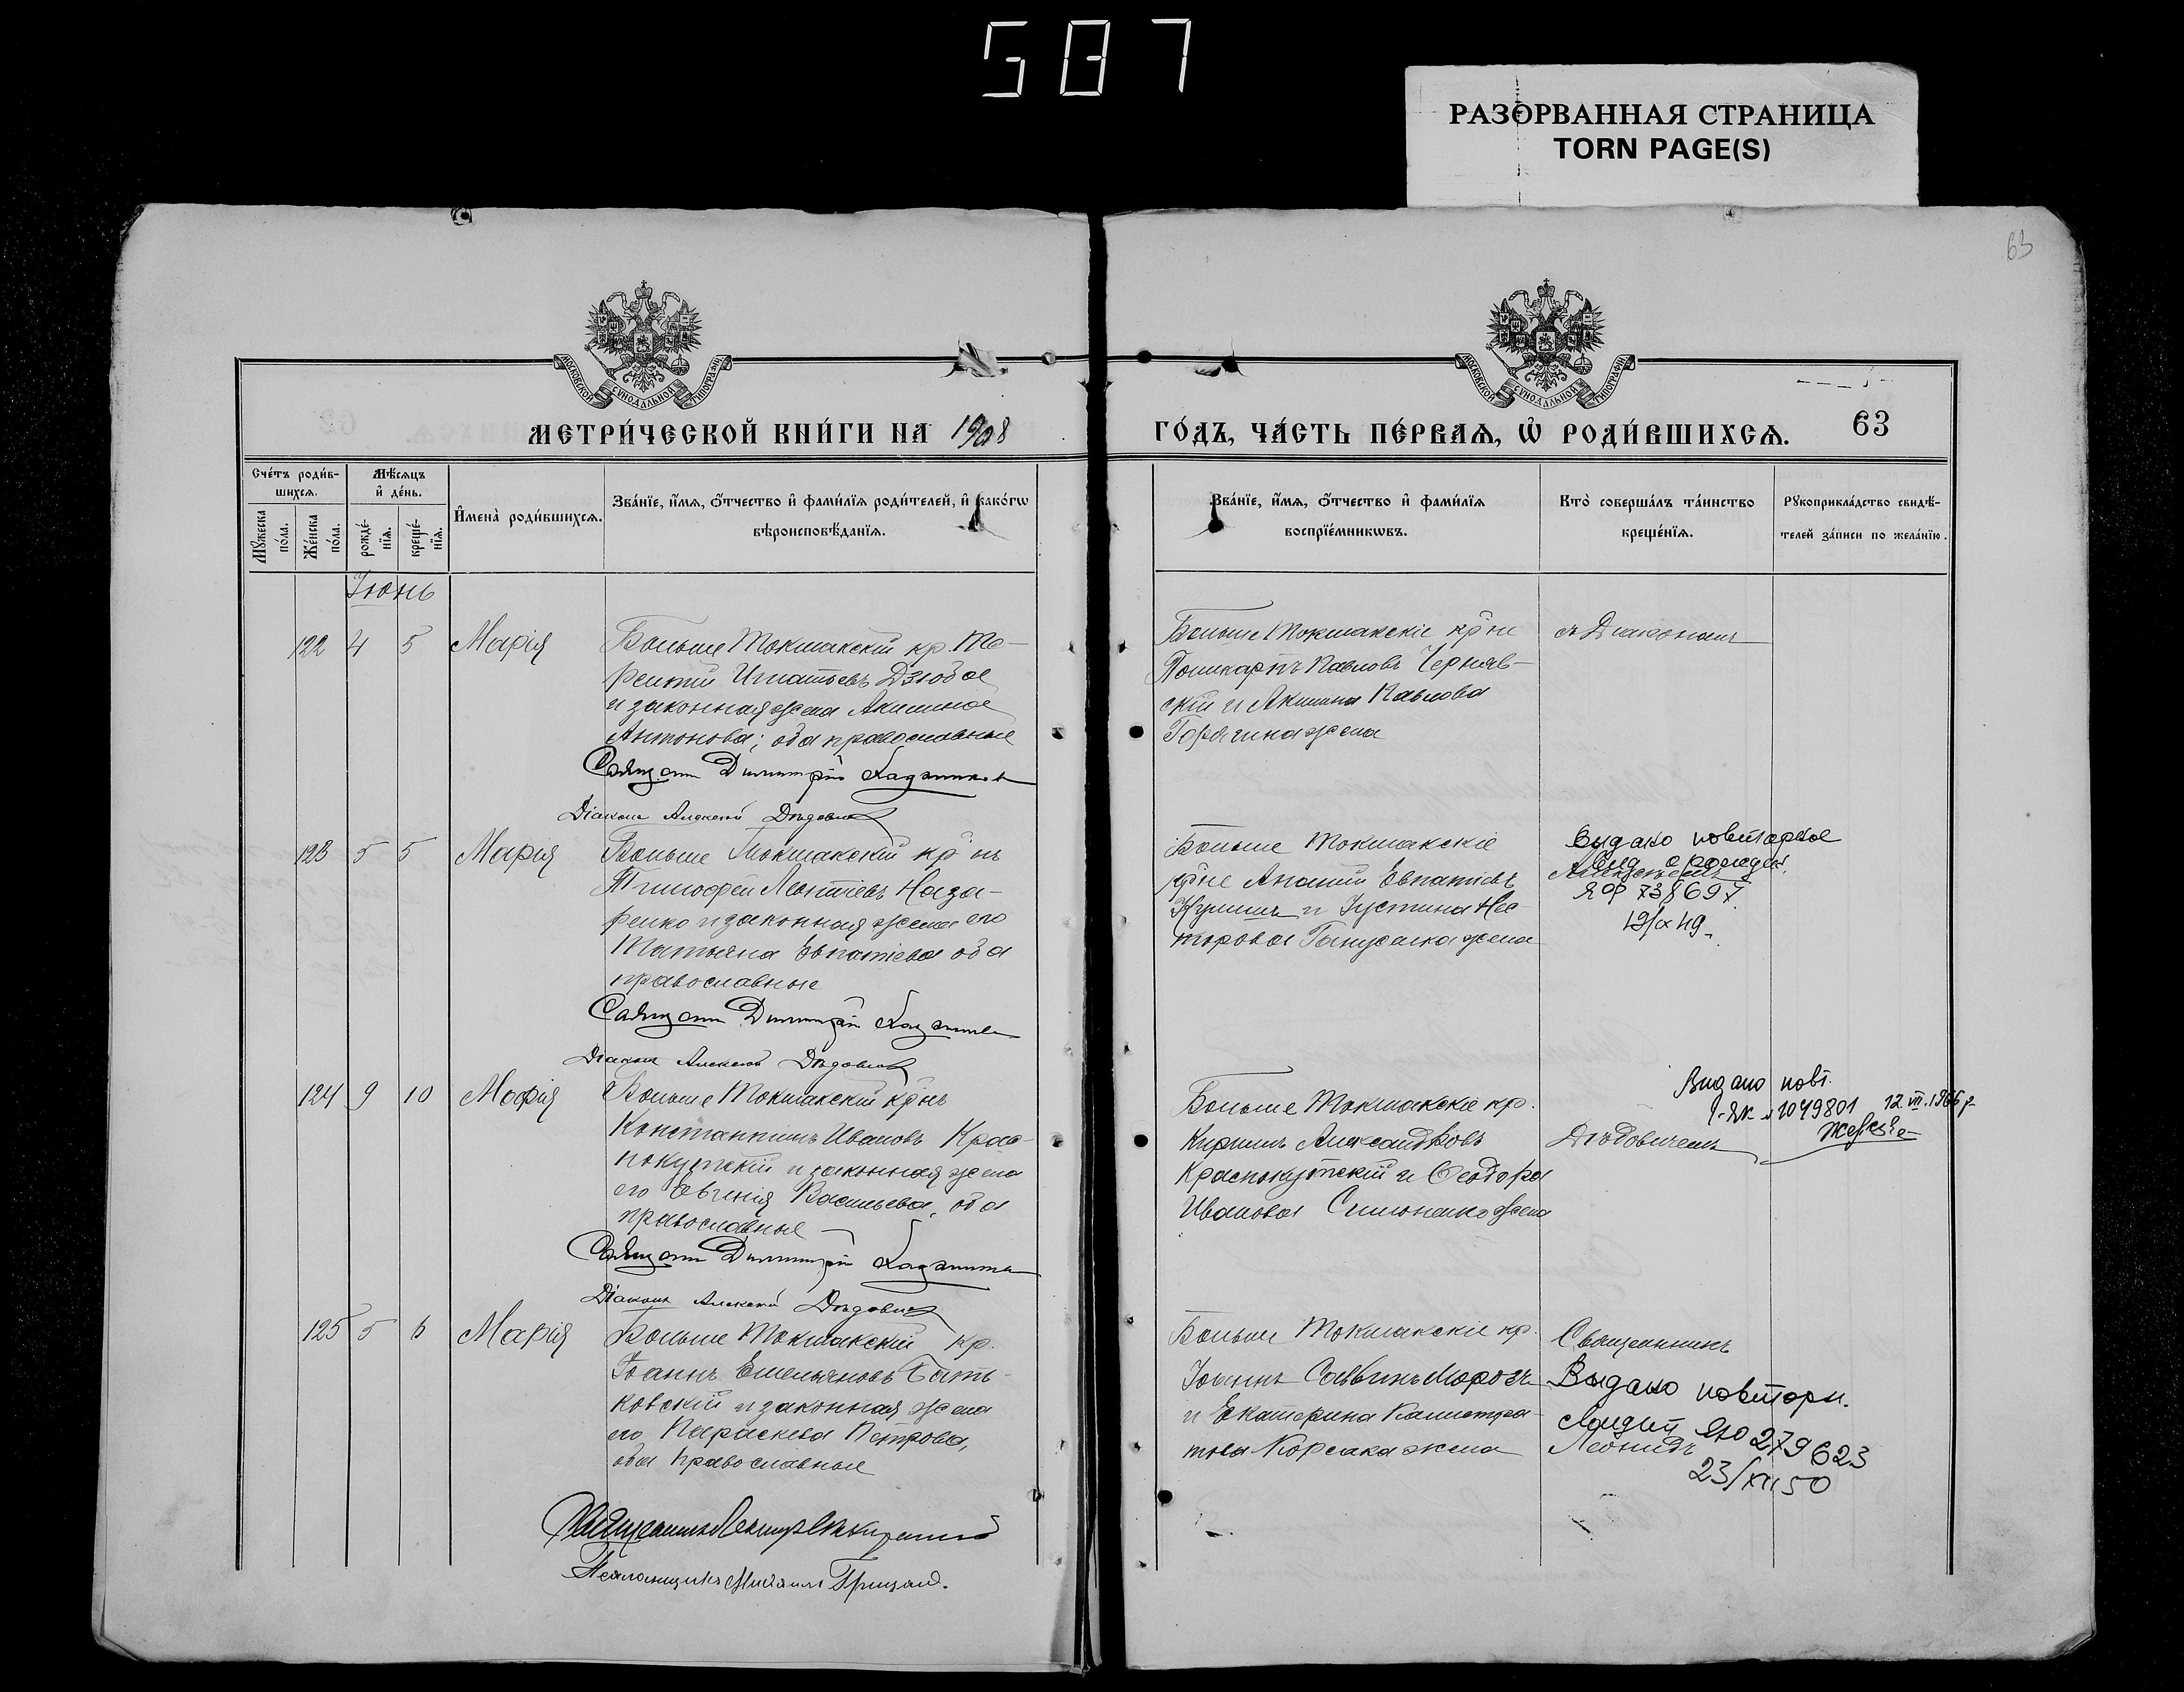 587
РАЗОРВАННАЯ СТРАНИЦА
TORN PAGE(S)
63
МОСКОВСКОЙ СѴНОДАЛЬНОЙ ТИПОГРАФІИ
МОСКОВСКОЙ СѴНОДАЛЬНОЙ ТИПОГРАФІИ
МЕТРИ́ЧЕСКОЙ КНИ́ГИ НА 1908
ГО́ДЪ, ЧА́СТЬ ПЕ́РВАѦ, Ѡ҆ РОДИ́ВШИХСѦ. 63
Счéтъ роди́в-
шихсѧ.
Мꙋ́жеска по́ла.
Жéнска по́ла.
Мѣ́сѧцъ
и҆ дéнь.
рождé-
нїѧ.
крещé-
нїѧ.
И҆мена̀ роди́вшихсѧ.
Звáнїе, и҆́мѧ, ѻ҆́тчество и҆ фами́лїѧ роди́телей, и҆ како́гѡ
вѣроисповѣ́данїѧ.
Звáнїе, и҆́мѧ, ѻ҆́тчество и҆ фами́лїѧ
воспрїéмникѡвъ.
Кто̀ совершáлъ тáинство
крещéнїѧ.
Рꙋкоприклáдство свидѣ́-
телей зáписи по желáнїю.
Іюнь
122 4 5 Марія
Больше Токмакскій кр. Те-
рентій Игнатьевъ Дзюба
и законная жена Акилина
Антонова; оба православные
Священ Димитрій
Діаконъ Алексей Дѣдович
Больше Токмакскіе кр͠не
Поликарпъ Павловъ Черняв-
скій и Акилина Павлова
Горягина жена
съ Діакономъ
123 5 5 Марія
Больше Токмакскій кр͠нъ
Тимофей Леонтіевъ Наза-
ренко и законная жена его
Татьяна Евпатіева оба
православные
Священ Димитрій
Діаконъ Алексей Дѣдович
Больше Токмакскіе
кр͠не Ананій Евпатіевъ
и Іустина Нес-
торова жена
Видано повторное
Алексеемъ
ЯОР 738697
19/X 49
124 9 10 Марія
Больше Токмакскій кр͠нъ
Константинъ Ивановъ Крас-
нокутскій и законная жена
его Евгенія Васильева, оба
православные
Священ Димитрій
Діаконъ Алексей Дѣдович
Больше Токмакскіе кр.
Кириллъ Александровъ
Краснокутскій и Ѳеодора
Иванова Симоненко жена
Видано повт.
1049801 12.VII.1966 р
Дѣдовичемъ
125 5 6 Марія
Больше Токмакскій кр.
Іоаннъ Емельяновъ Сить-
ковскій и законная жена
его Параскева Петрова,
оба православные
Священникъ
Псаломщикъ Михаилъ Грицай.
Больше Токмакскіе кр.
Іоаннъ Саввинъ Морозъ
и Екатерина Калистра-
това Корсака жена
Священникъ
Видано повторн.
ЯЮ 279623
Леонидъ
23/XII 50